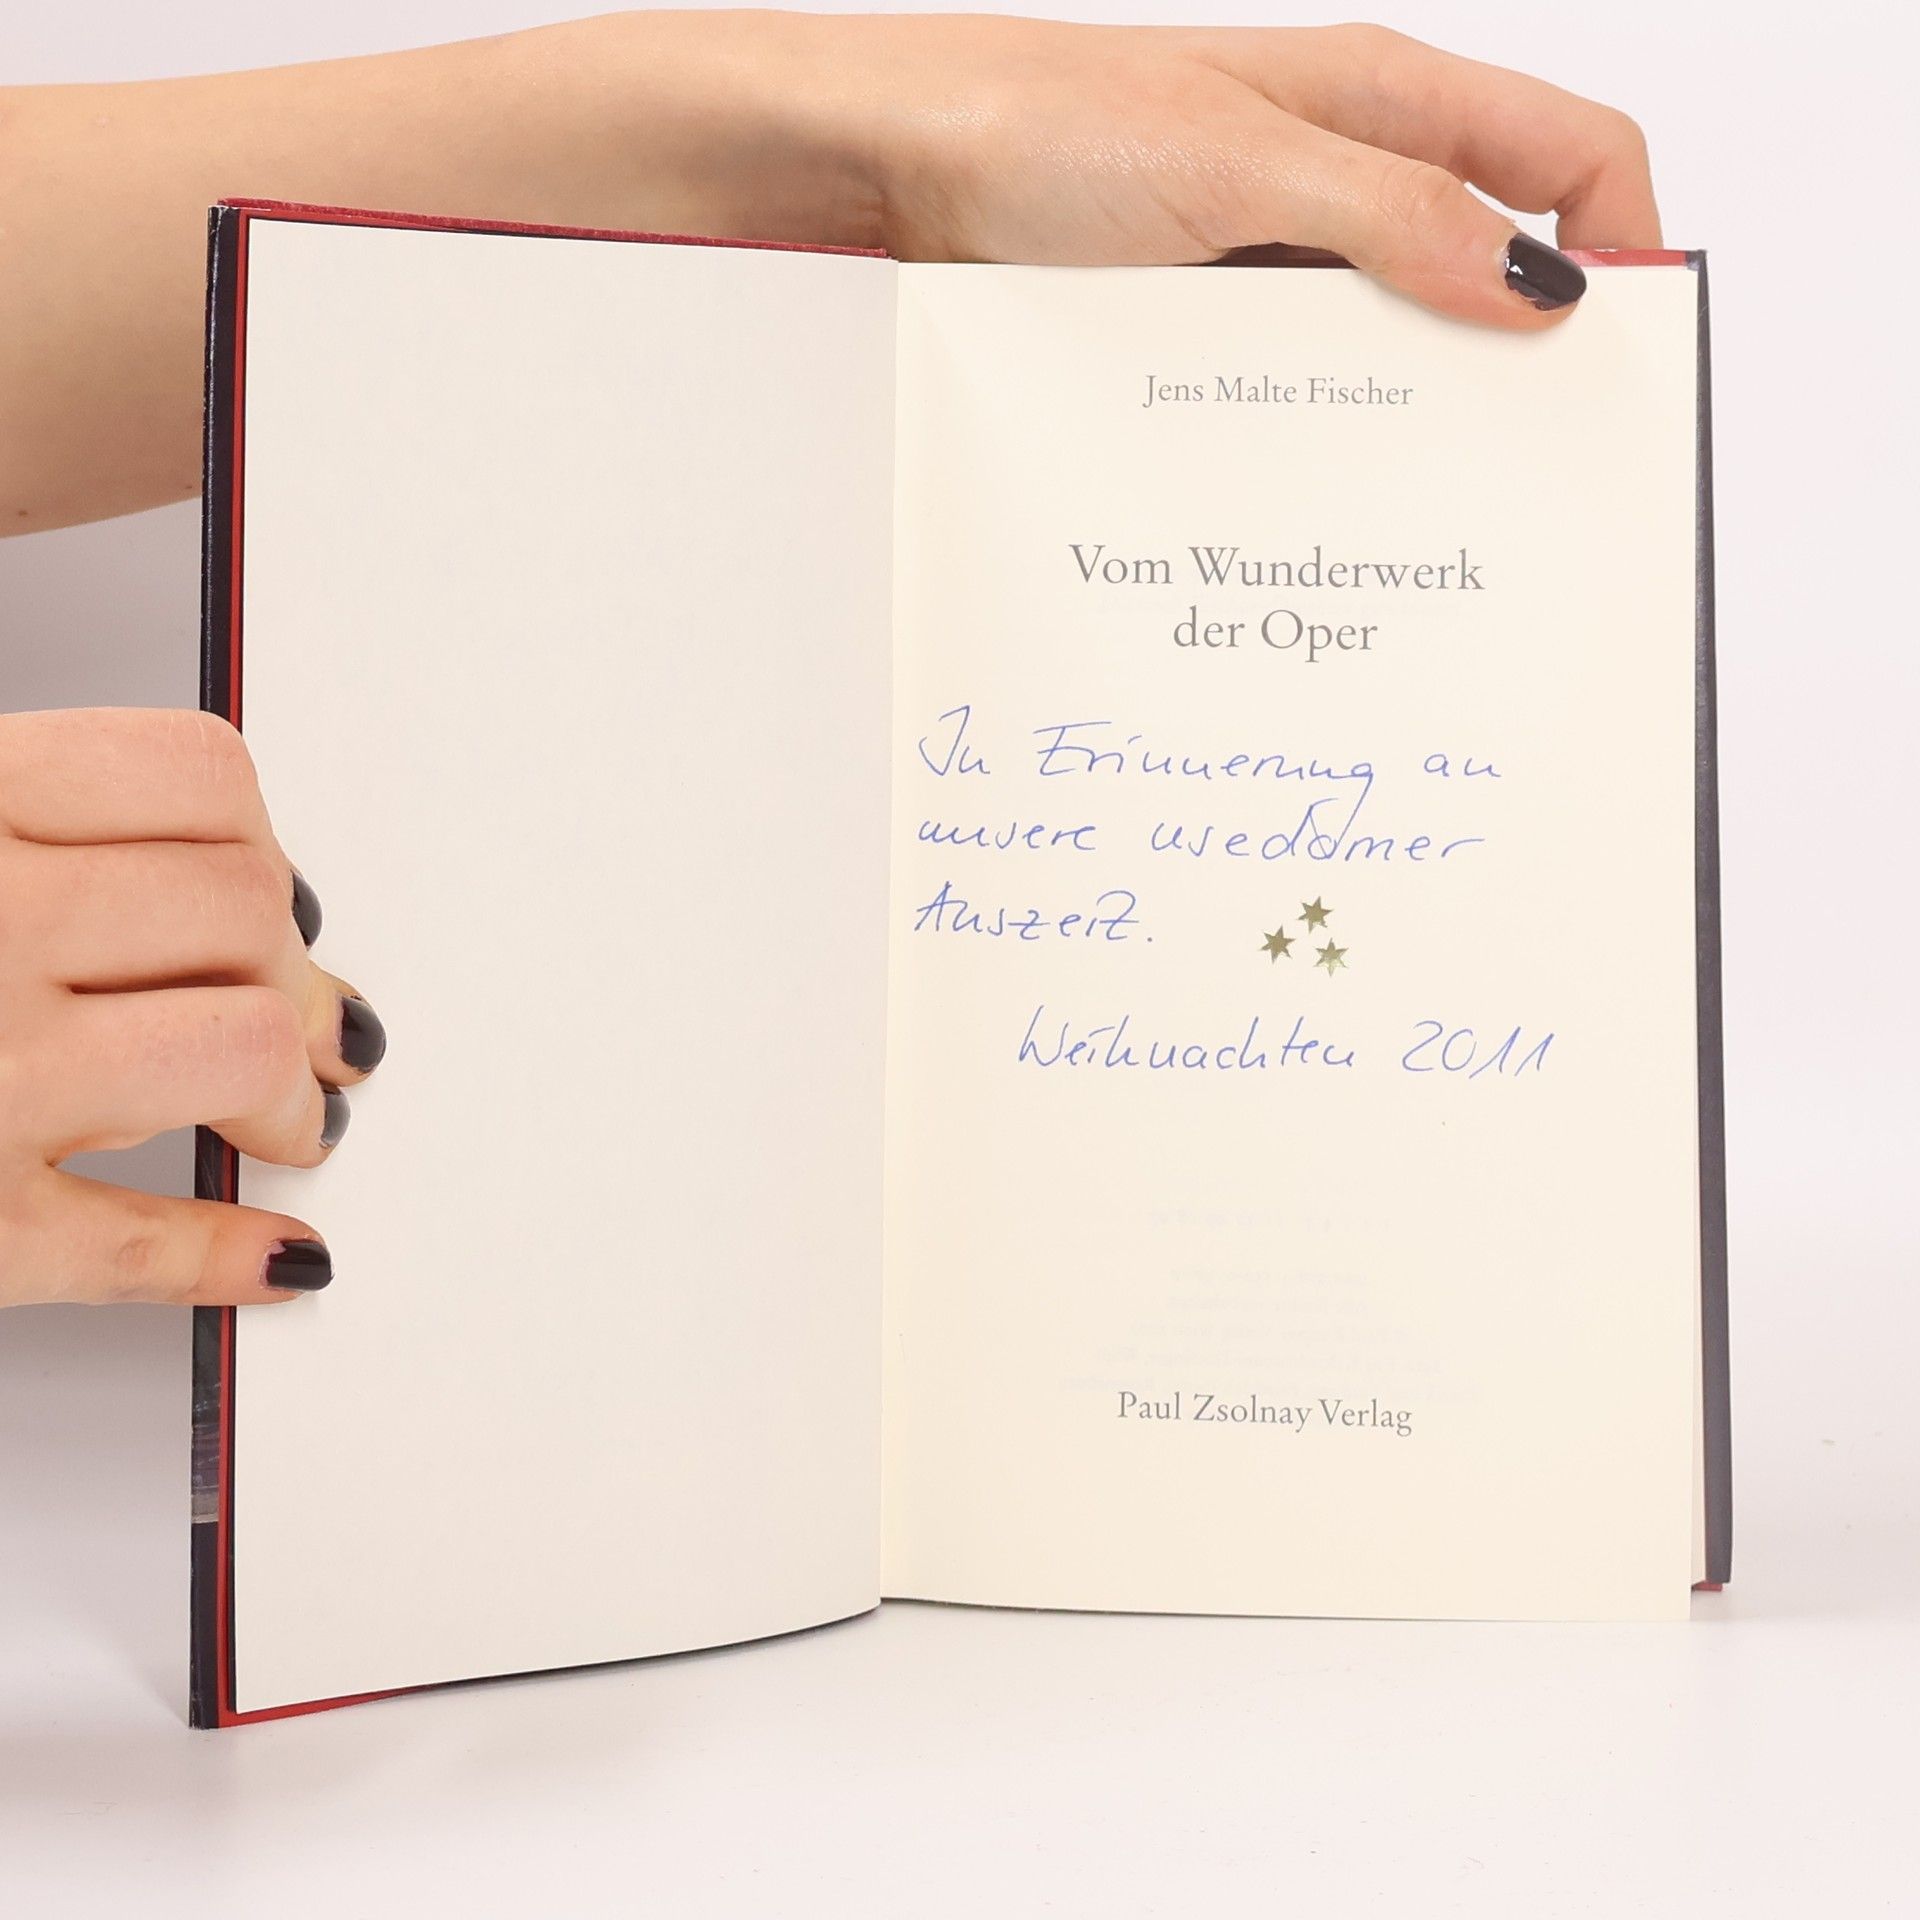 Jens Malte Fischer
Vom Wunderwerk
der Oper
In Erinnerung an
unsere usedomer
Auszeit.
Weihnachten 2011
Paul Zsolnay Verlag